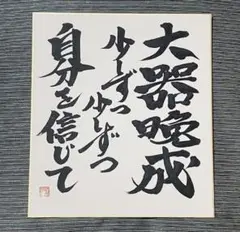 大器晩成
少しずつ少しずつ
自分を信じて